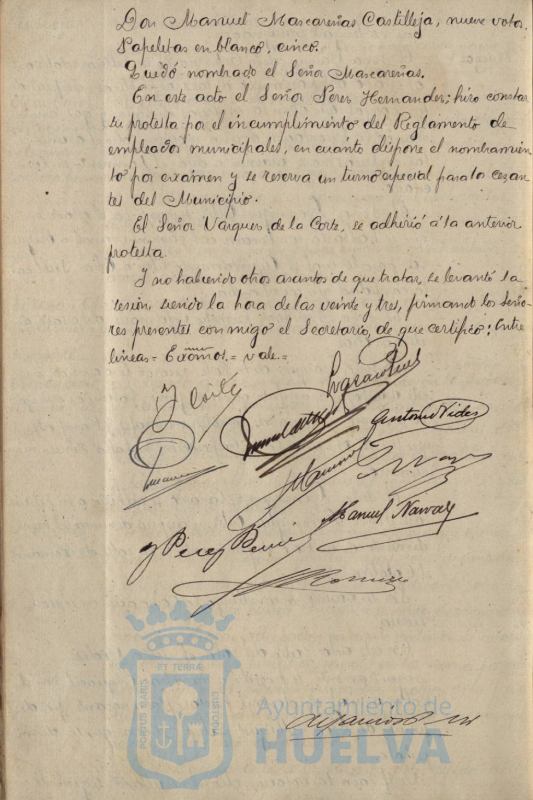 Don Manuel Mascareñas Castilleja, nueve votos.
Papeletas en blanco, cinco.
Quedó nombrado el Señor Mascareñas.
En este acto el Señor Perez Hernandez; hizo constar
su protesta por el incumplimiento del Reglamento de
empleados municipales, en cuanto dispone el nombramien
to por exámen y se reserva un turno especial para los cezan
tes del Municipio.
El Señor Vázquez de la Corte, se adhirió á la anterior
protesta.
Y no habiendo otros asuntos de que tratar, se levantó la
sesión, siendo la hora de las veinte y tres, firmando los seño
res presentes conmigo el Secretario, de que certifico: Entre
lineas = Exmos. = vale. =
Antonio Vides
Manuel Navarro
ET TERRÆ
PORTUS MARIS
CUSTODIA
Ayuntamiento de
HUELVA